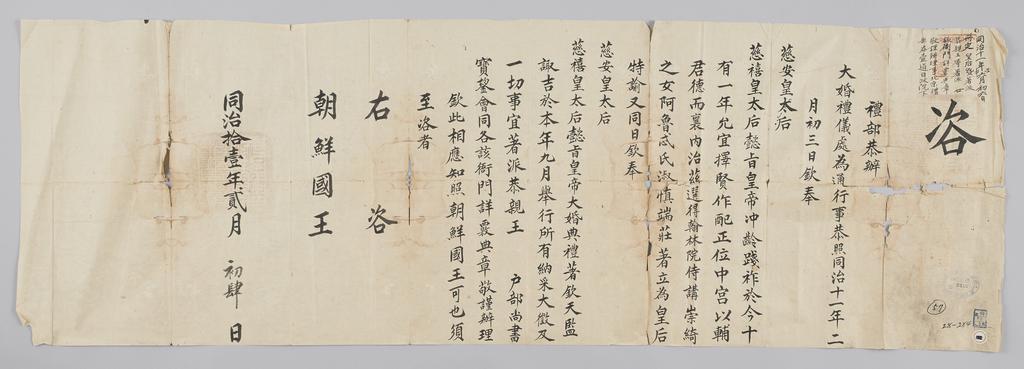 咨
禮部恭辦
大婚禮儀處為通行事恭照同治十一年二
月初三日欽奉
慈安皇太后
慈禧皇太后懿旨皇帝冲齡踐祚於今十
有一年允宜擇賢作配正位中宮以輔
君德而襄內治茲選得翰林院侍講崇綺
之女阿魯忒氏淑慎端莊著立為皇后
特諭又同日欽奉
慈安皇太后
慈禧皇太后懿旨皇帝大婚典禮著欽天監
諏吉於本年九月舉行所有納采大徵及
一切事宜著派恭親王 戶部尚書
寶鋆會同各該衙門詳覈典章敬謹辦理
欽此相應知照朝鮮國王可也須
至咨者
右咨
朝鮮國王
同治拾壹年貳月 初肆 日
57
28-284